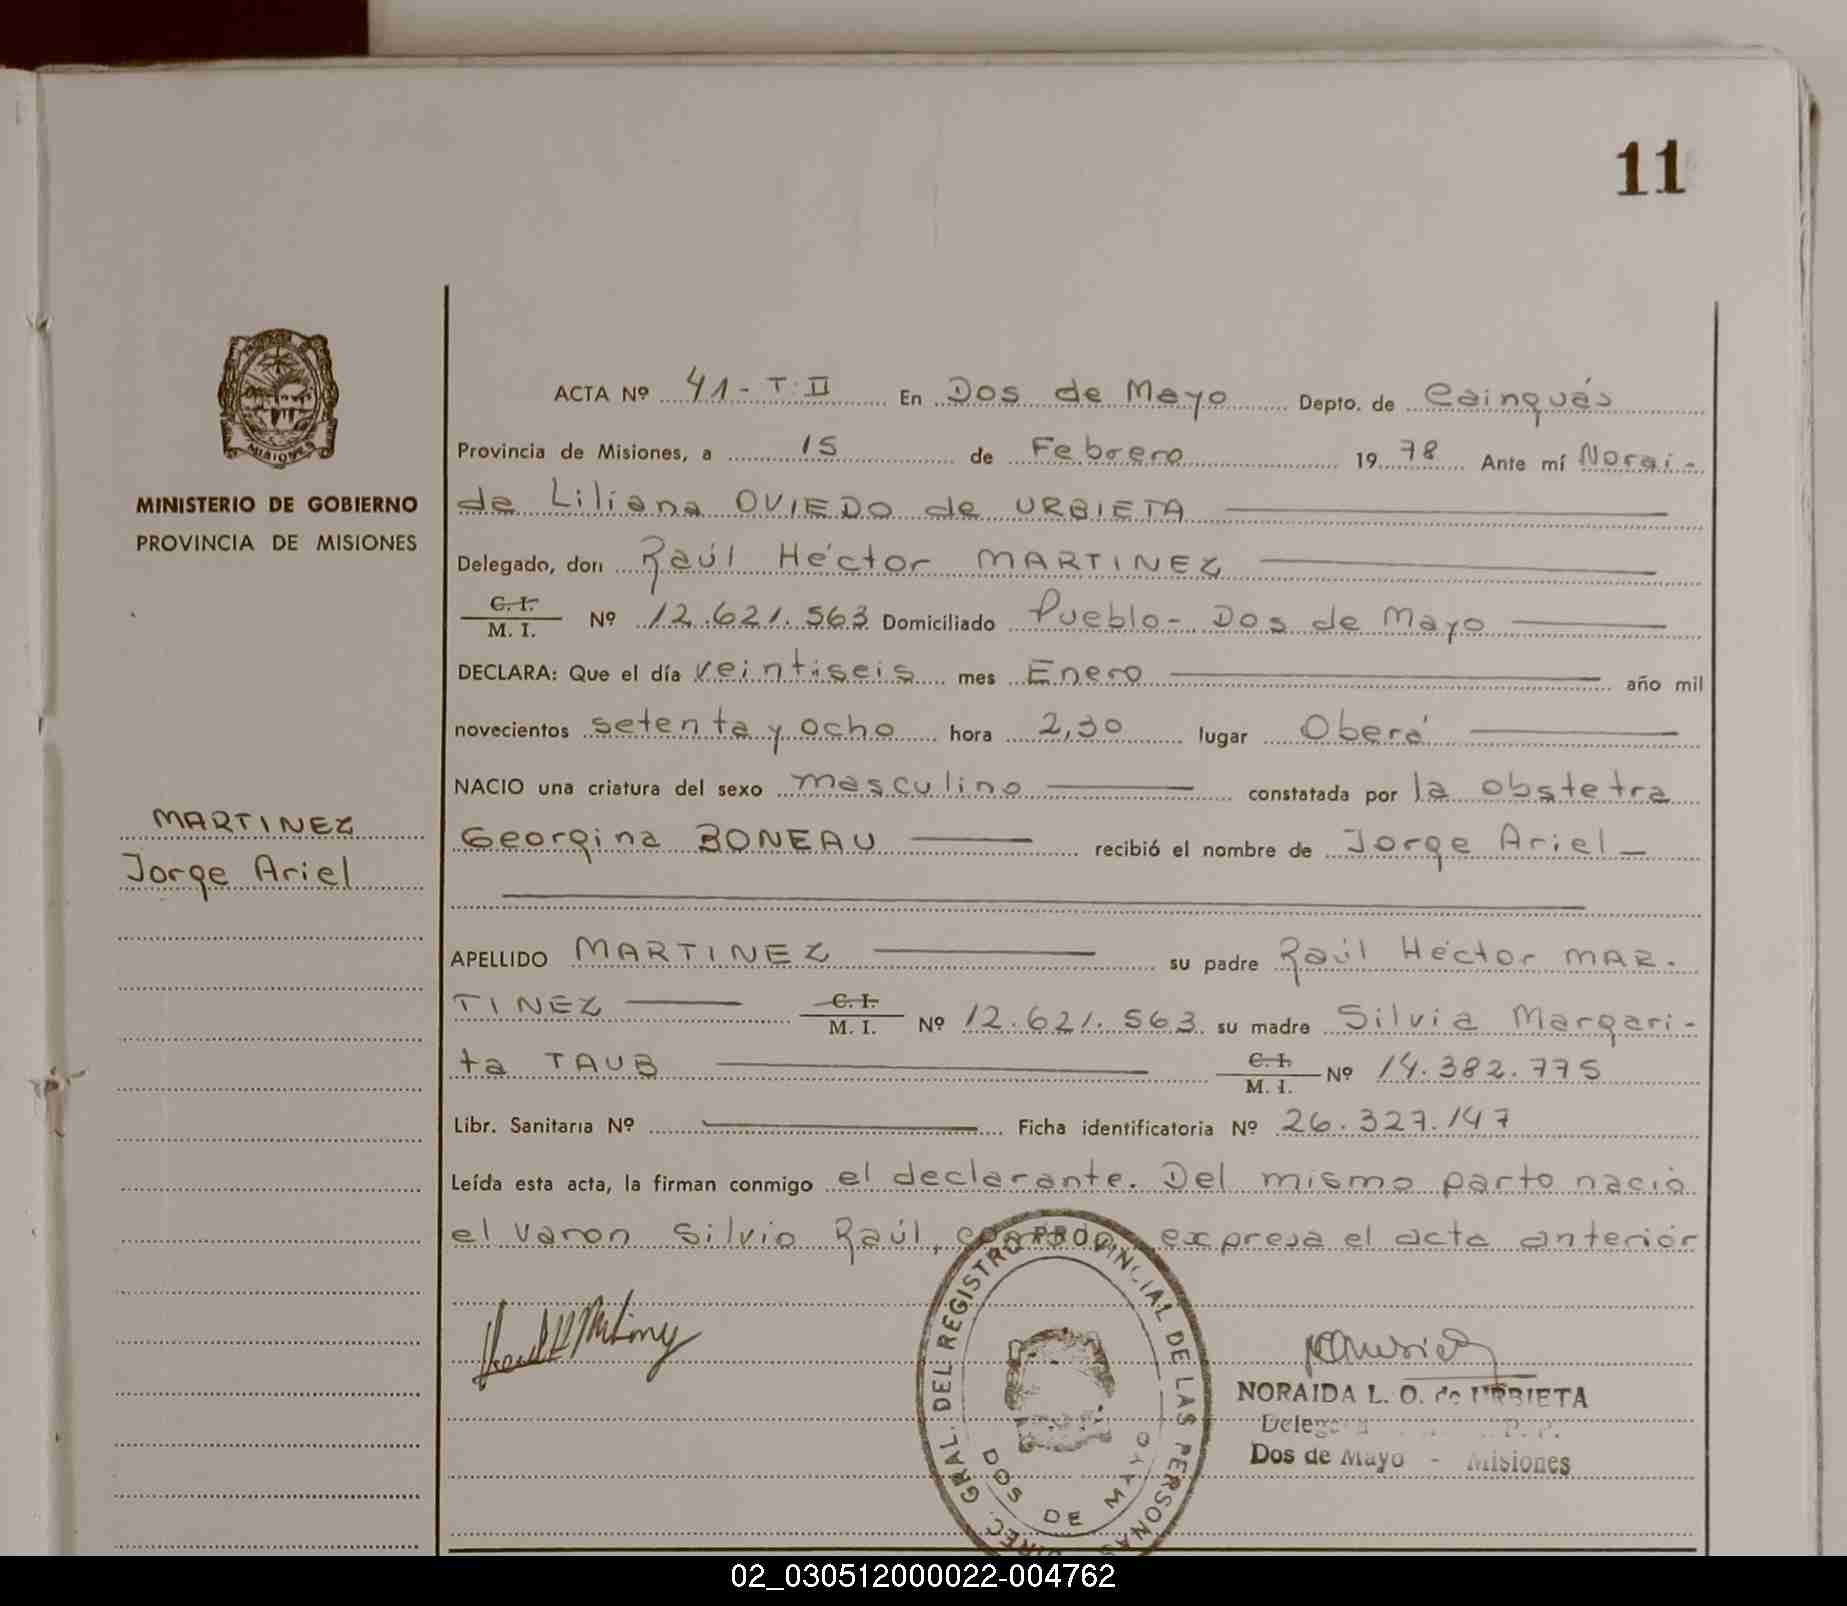 11
MISIONES
MINISTERIO DE GOBIERNO
PROVINCIA DE MISIONES
MARTINEZ
Jorge Ariel
ACTA Nº 41 - T: II En Dos de Mayo Depto. de Cainguás
Provincia de Misiones, a 15 de Febrero 1978 Ante mí Norai-
da Liliana OVIEDO de URBIETA
Delegado, don Raúl Héctor MARTINEZ
C. I.
M. I. Nº 12.621.563 Domiciliado Pueblo - Dos de Mayo
DECLARA: Que el día veintiseis mes Enero año mil
novecientos setenta y ocho hora 2,30 lugar Oberá
NACIO una criatura del sexo masculino constatada por la obstetra
Georgina BONEAU recibió el nombre de Jorge Ariel
APELLIDO MARTINEZ su padre Raúl Héctor MAR-
TINEZ C. I. M. I. Nº 12.621.563 su madre Silvia Margari-
ta TAUB C. I. M. I. Nº 14.382.775
Libr. Sanitaria Nº Ficha identificatoria Nº 26.327.147
Leída esta acta, la firman conmigo el declarante. Del mismo parto nació
el varon Silvio Raúl, expresa el acta anterior
DIREC. GRAL. DEL REGISTRO PROVINCIAL DE LAS PERSONAS
DOS DE MAYO
NORAIDA L. O. de URBIETA
Dos de Mayo - Misiones
02_030512000022-004762